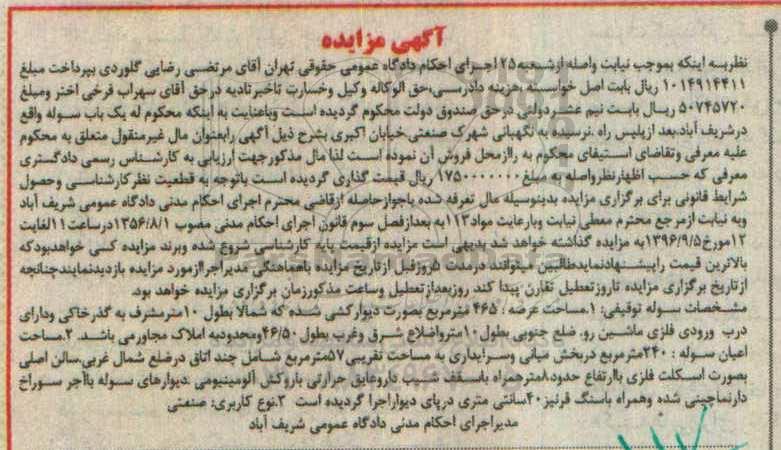 آگهی مزایده
نظربه اینکه بموجب نیابت واصله ازشعبه۲۵ اجرای احکام دادگاه عمومی حقوقی تهران آقای مرتضی رضایی گلوردی بپرداخت مبلغ
۱۰۱۴۹۱۴۴۱۱ ریال بابت اصل خواسته،هزینه دادرسی،حق الوکاله وکیل وخسارت تاخیرتادیه درحق آقای سهراب فرخی اختر ومبلغ
۵۰۷۴۵۷۲۰ ریال بابت نیم عشردولتی درحق صندوق دولت محکوم گردیده است وباعنایت به اینکه محکوم له یک باب سوله واقع
درشریف آباد،بعد ازپلیس راه ،نرسیده به نگهبانی شهرک صنعتی،خیابان اکبری بشرح ذیل آگهی رابعنوان مال غیرمنقول متعلق به محکوم
علیه معرفی وتقاضای استیفای محکوم به راازمحل فروش آن نموده است لذا مال مذکورجهت ارزیابی به کارشناس رسمی دادگستری
معرفی که حسب اظهارنظرواصله به مبلغ۱۷۵۰۰۰۰۰۰۰ ریال قیمت گذاری گردیده است باتوجه به قطعیت نظرکارشناسی وحصول
شرایط قانونی برای برگزاری مزایده بدینوسیله مال تعرفه شده باجوازحاصله ازقاضی محترم اجرای احکام مدنی دادگاه عمومی شریف آباد
وبه نیابت ازمرجع محترم معطی نیابت وبارعایت مواد۱۱۳به بعدازفصل سوم قانون اجرای احکام مدنی مصوب ۱۳۵۶/۸/۱ درساعت۱۱لغایت
۱۲مورخ۱۳۹۶/۹/۵به مزایده گذاشته خواهد شد بدیهی است مزایده ازقیمت پایه کارشناسی شروع شده وبرند مزایده کسی خواهدبودکه
بالاترین قیمت راپیشنهادنمایدطالبین میتوانند درمدت ۵روزقبل ازتاریخ مزایده باهماهنگی مدیراجراازمورد مزایده بازدیدنمایندچنانچه
ازتاریخ برگزاری مزایده تاروزتعطیل تقارن پیدا کند، روزبعدازتعطیل وساعت مذکورزمان برگزاری مزایده خواهد بود.
مشخصات سوله توقیفی: ۱.مساحت عرصه : ۴۶۵ مترمربع بصورت دیوارکشی شده که شمالا بطول ۱۰مترمشرف به گذرخاکی ودارای
درب ورودی فلزی ماشین رو، ضلع جنوبی بطول۱۰متر واضلاع شرق وغرب بطول۴۶/۵۰ومحدودبه املاک مجاورمی باشد. ۲.مساحت
اعیان سوله : ۲۴۰مترمربع دربخش میانی وسرایداری به مساحت تقریبی۵۷مترمربع شامل چند اتاق درضلع شمال غربی،سالن اصلی
بصورت اسکلت فلزی باارتفاع حدود۸مترهمراه باسقف شیب داروعایق حرارتی باروکش آلومینیومی ،دیوارهای سوله باآجر سوراخ
دارنماچینی شده وهمراه باسنگ قرنیز۴۰سانتی متری درپای دیواراجرا گردیده است ۳.نوع کاربری: صنعتی
مدیراجرای احکام مدنی دادگاه عمومی شریف آباد